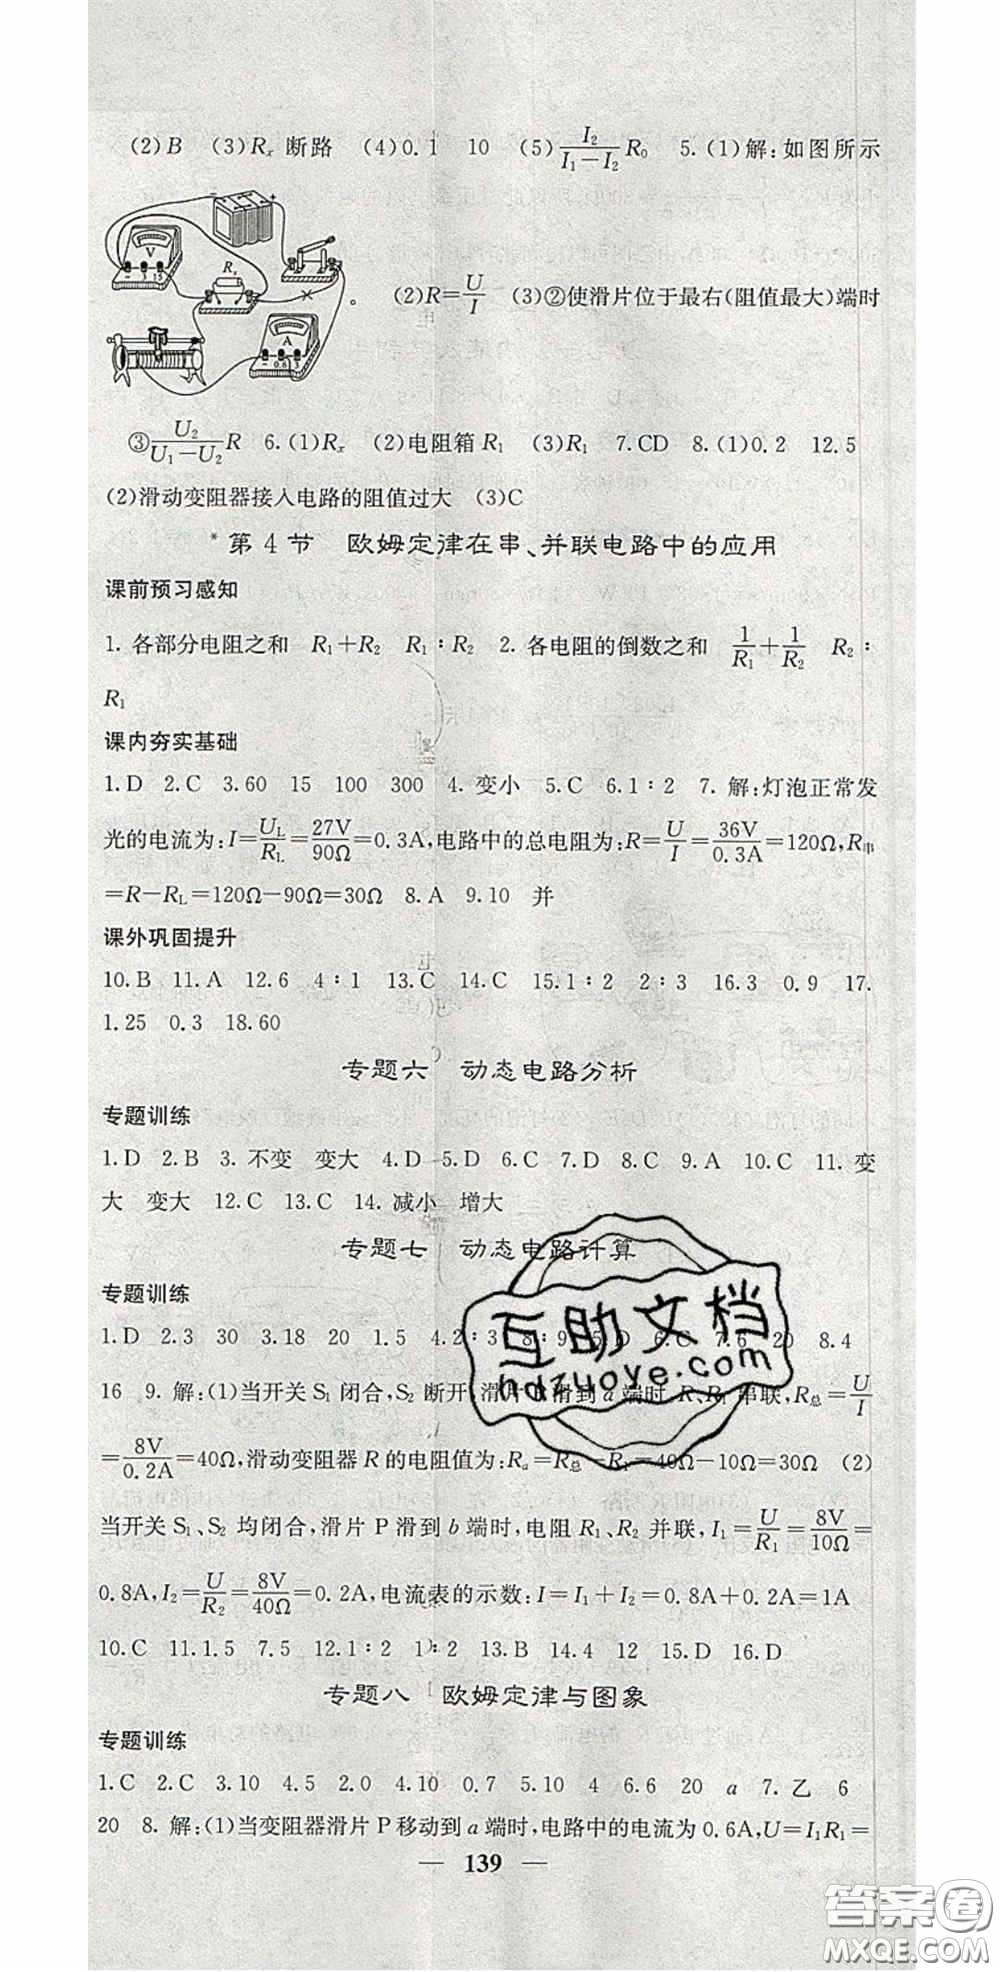 (2)B (3)Rₓ断路 (4)0.1 10 (5)I₂/(I₁−I₂)R₀ 5.(1)解:如图所示
− +
V
− 3 15
Rₓ
×
A
− 0.6 3
。 (2)R=U/I (3)②使滑片位于最右(阻值最大)端时
③U₂/(U₁−U₂)R 6.(1)Rₓ (2)电阻箱R₁ (3)R₁ 7.CD 8.(1)0.2 12.5
(2)滑动变阻器接入电路的阻值过大 (3)C
*第4节 欧姆定律在串、并联电路中的应用
课前预习感知
1. 各部分电阻之和 R₁+R₂ R₁∶R₂ 2. 各电阻的倒数之和 1/R₁+1/R₂ R₂∶
R₁
课内夯实基础
1.D 2.C 3.60 15 100 300 4. 变小 5.C 6.1∶2 7. 解:灯泡正常发
光的电流为:I=U_L/R_L=27V/90Ω=0.3A,电路中的总电阻为:R=U/I=36V/0.3A=120Ω,R串
=R−R_L=120Ω−90Ω=30Ω 8.A 9.10 并
课外巩固提升
10.B 11.A 12.6 4∶1 13.C 14.C 15.1∶2 2∶3 16.3 0.9 17.
1.25 0.3 18.60
专题六 动态电路分析
专题训练
1.D 2.B 3. 不变 变大 4.D 5.D 6.C 7.D 8.C 9.A 10.C 11. 变
大 变大 12.C 13.C 14. 减小 增大
专题七 动态电路计算
专题训练
1.D 2.3 30 3.18 20 1.5 4.2∶3 8∶9 5.D 6.C 7.6 20 8.4
16 9. 解:(1)当开关S₁闭合,S₂断开,滑片P滑到a端时,R、R₁串联,R总=U/I
=8V/0.2A=40Ω,滑动变阻器R的电阻值为:Rₐ=R总−R₁=40Ω−10Ω=30Ω (2)
当开关S₁、S₂均闭合,滑片P滑到b端时,电阻R₁、R₂并联,I₁=U/R₁=8V/10Ω=
0.8A,I₂=U/R₂=8V/40Ω=0.2A,电流表的示数:I=I₁+I₂=0.8A+0.2A=1A
10.C 11.1.5 7.5 12.1∶2 1∶2 13.B 14.4 12 15.D 16.D
专题八 欧姆定律与图象
专题训练
1.C 2.C 3.10 4.5 2.0 4.10 0.7 5.10 4 6.6 20 a 7.乙 6
20 8. 解:(1)当变阻器滑片P移动到a端时,电路中的电流为0.6A,U=I₁R₁=
— 139 —
互助文档
hdzuoye.com
答案圈
MXQE.COM